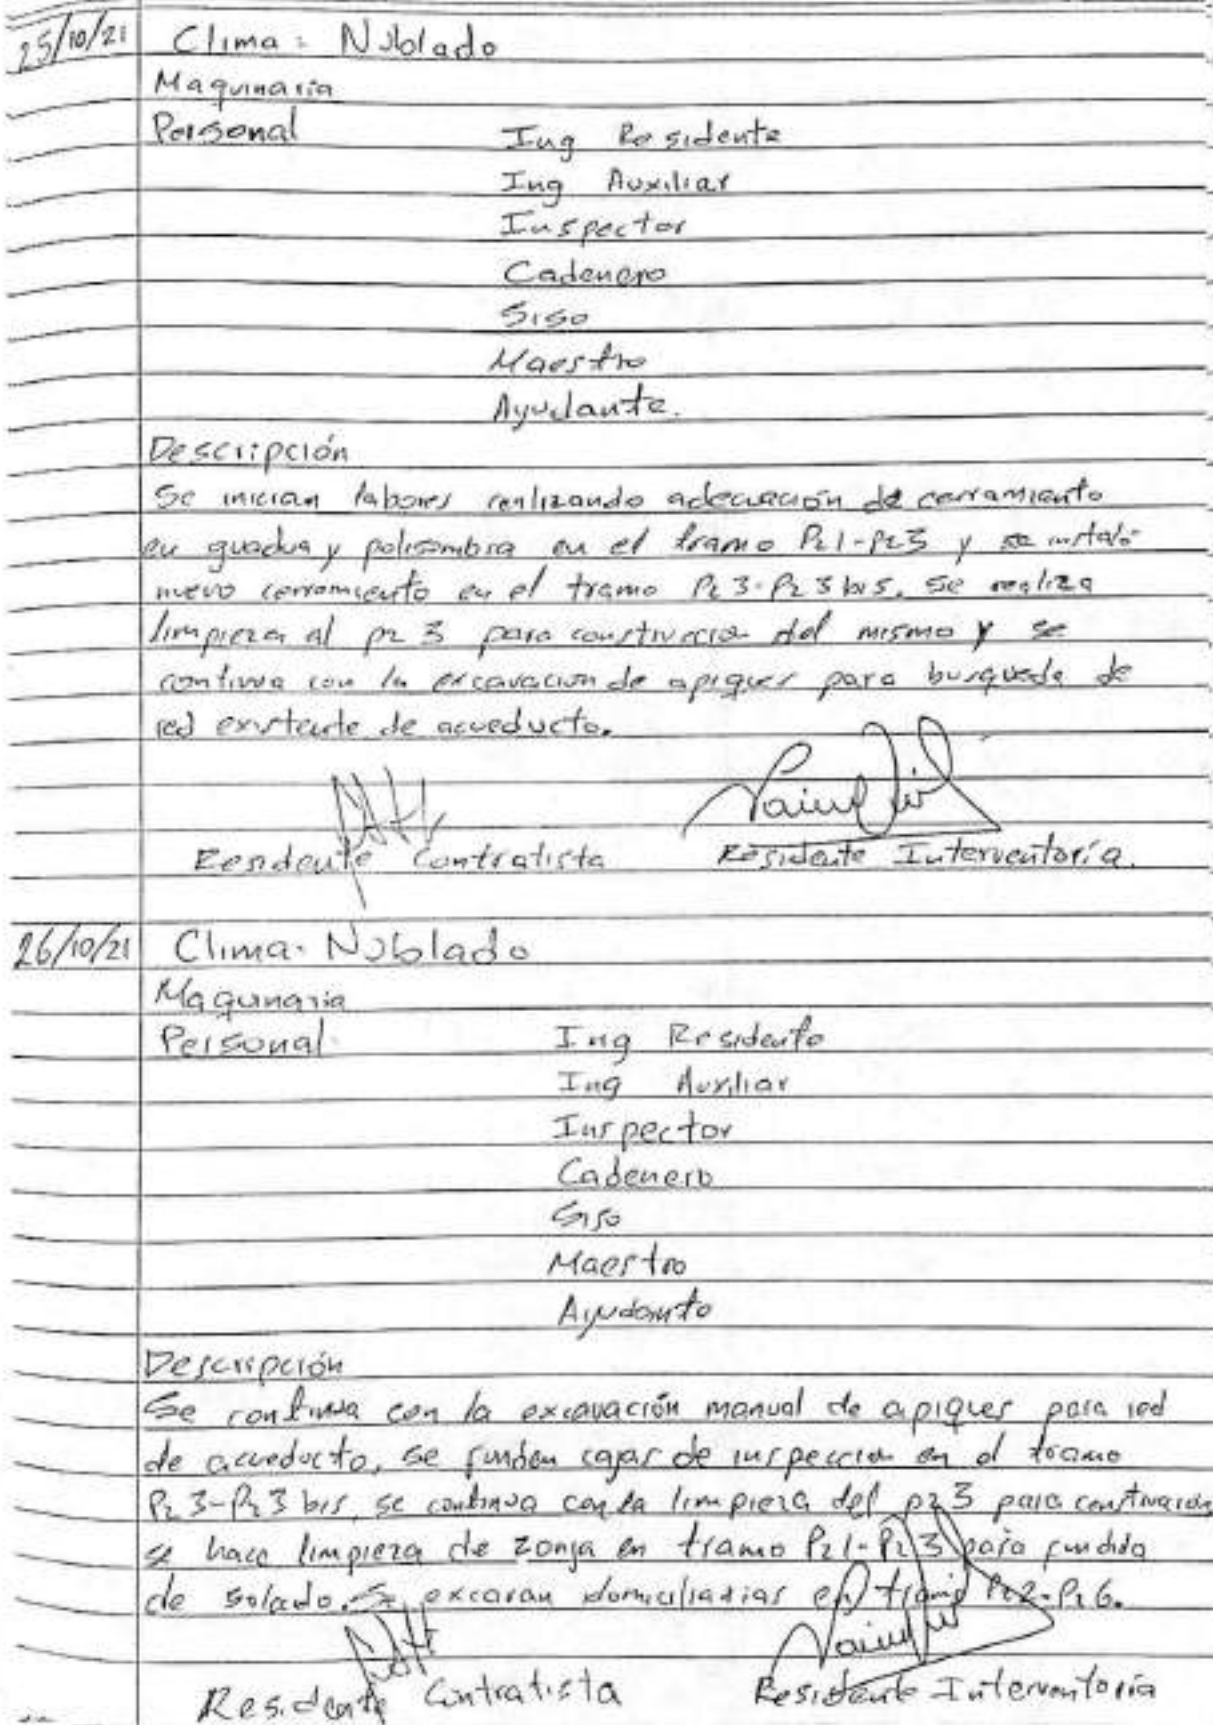 25/10/21 Clima: Nublado
Maquinaria
Personal Ing Residente
Ing Auxiliar
Inspector
Cadenero
Siso
Maestro
Ayudante.
Descripción
Se inician labores realizando adecuación de cerramiento
en guadua y polisombra en el tramo Pz1-Pz3 y se instaló
nuevo cerramiento en el tramo Pz3-Pz3 bis. Se realiza
limpieza al pz 3 para construccion del mismo y se
continua con la excavacion de apiques para busqueda de
red existente de acueducto.
Residente Contratista Residente Interventoría.
26/10/21 Clima: Nublado
Maquinaria
Personal Ing Residente
Ing Auxiliar
Inspector
Cadenero
Siso
Maestro
Ayudante
Descripción
Se continua con la excavación manual de apiques para red
de acueducto, se funden cajas de inspeccion en el tramo
Pz3-Pz3 bis, se continua con la limpieza del pz3 para construcción
se hace limpieza de zanja en tramo Pz1-Pz3 para fundida
de solado. Se excavan domiciliarias en tramo Pz2-Pz6.
Residente Contratista Residente Interventoría